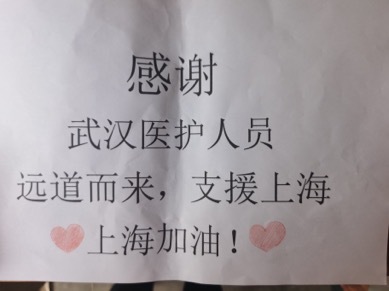 感谢
武汉医护人员
远道而来，支援上海
上海加油！